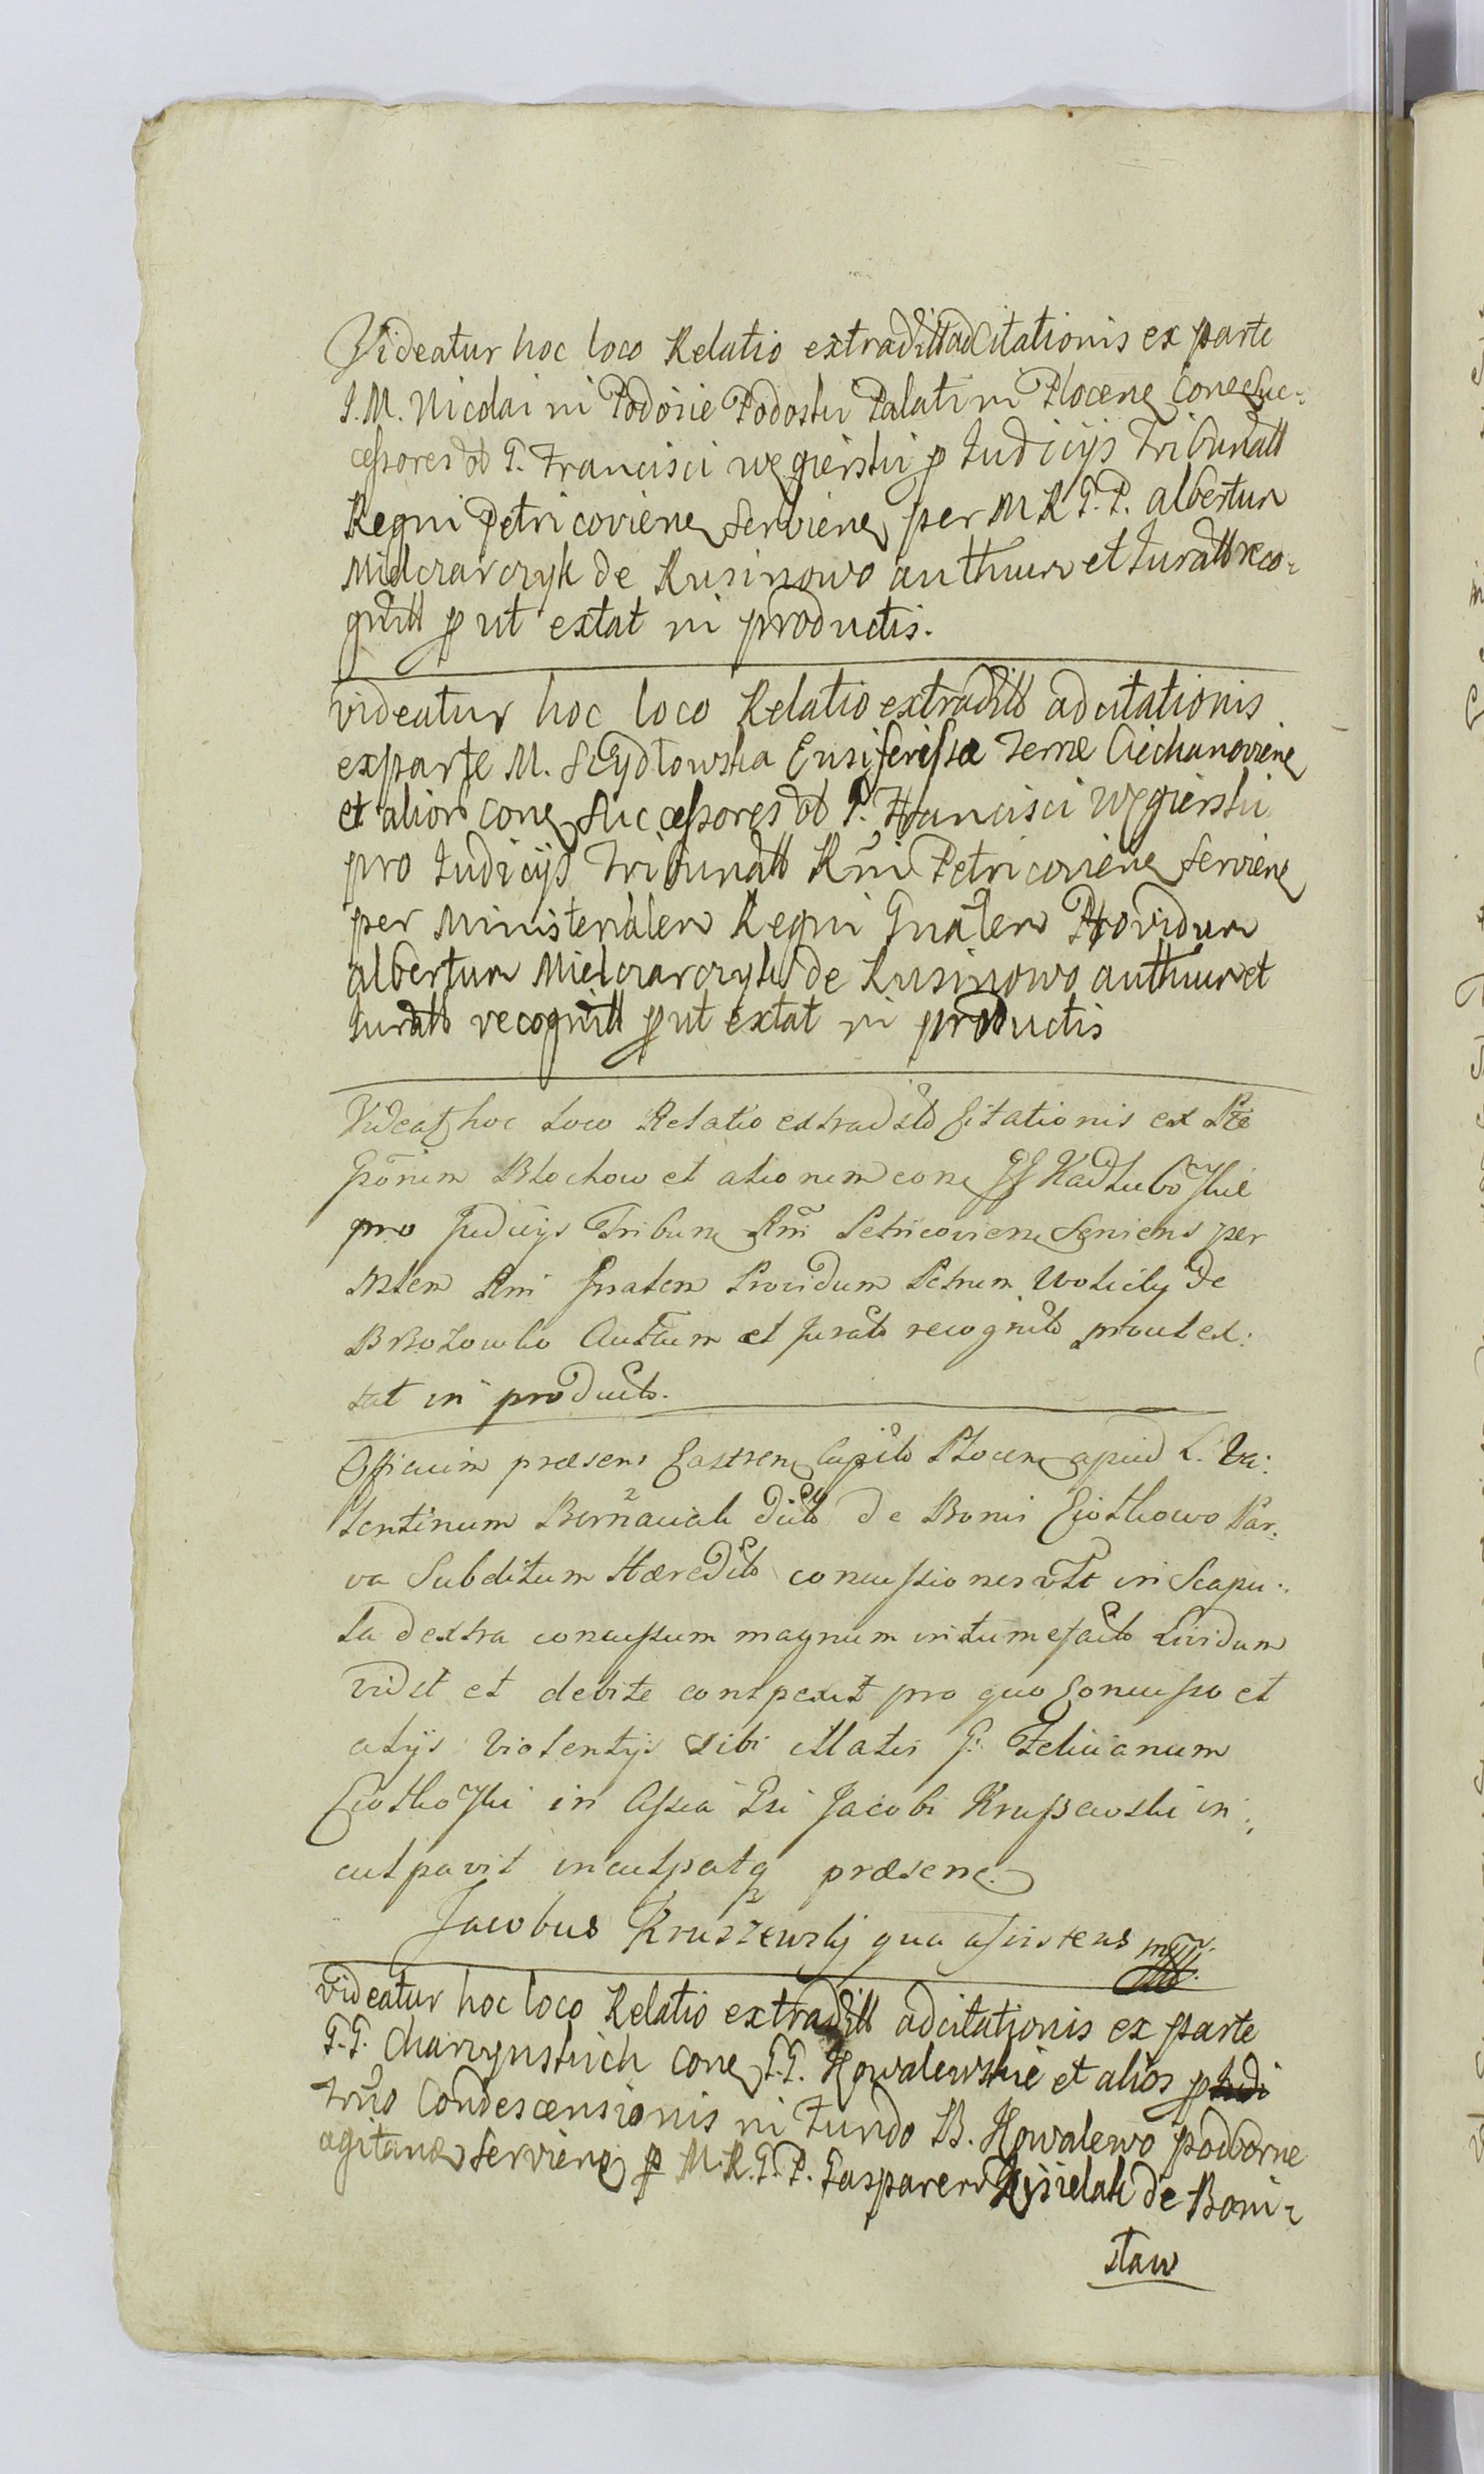 Videatur hoc loco Relatio extraditt adCitationis ex parte
I. M. Nicolai in Podosie Podoski Palatini Plocen Con Suc-
cessores ol G. Francisci Węgierski p Judicijs Tribunatt
Regni Petricovien Servien per M R G. P. albertum
Mielczarczyk de Rusinowo authum et Juratt reco-
gnitt put extat in productis.
videatur hoc loco Relatio extraditt adcitationis
exparte M. Szydłowska Ensiferissæ Terræ Ciechanovien
et alior con Successores ol G. Francisci Węgierski
pro Judicijs Tribunatt Rni Petricovien Servien
per Ministerialem Regni Gnalem Providum
albertum Mielczarczyk de Rusinowo authum et
Juratt recognitt put extat in productis
Videat hoc loco Relatio extradito Citationis ex Pte
Gnorum Blochow et alionum con GG Kadłubowskie
pro Judicijs Tribun Rni Petricovien Serviens per
Mlem Rni Gnalem Providum Petrum de
Brozowko Autum et Jurato recognito prout ex-
tat in producto.
Officium præsens Castren Capit Plocen apud L. Va-
lentinum dicto de Bonis Ciotkowo Par-
va Subditum Hæredito concussiones vlt in Scapu-
la dextra concussum magnum intumefacto Lividum
vidit et debite conspexit pro quo Concusso et
alijs violentijs sibi illatis G. Felicianum
Ciotkowski in Assia Gsi Jacobi Kruszewski in-
culpavit inculpatq præsen
Jacobus Kruszewskj qua assistens mpp
videatur hoc loco Relatio extraditt adcitationis ex parte
G.G. Charzynskich con G.G. Kowalewskie et alios p
Trno Condescensionis in Fundo B. Kowalewo podborne
agitan Servien p M.R.G.P. Gasparem Kisielak de Boni-
sław